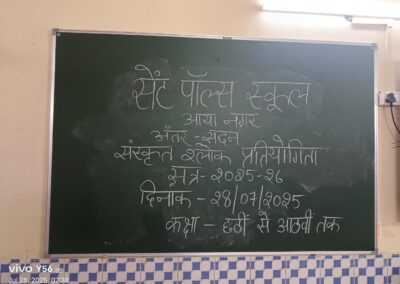 सेंट पॉल्स स्कूल
आया नगर
अंतर-सदन
संस्कृत श्लोक प्रतियोगिता
सत्र-2025-26
दिनांक - 28/07/2025
कक्षा - छठीं से आठवीं तक
vivo Y56
Jul 28, 2025, 07:38